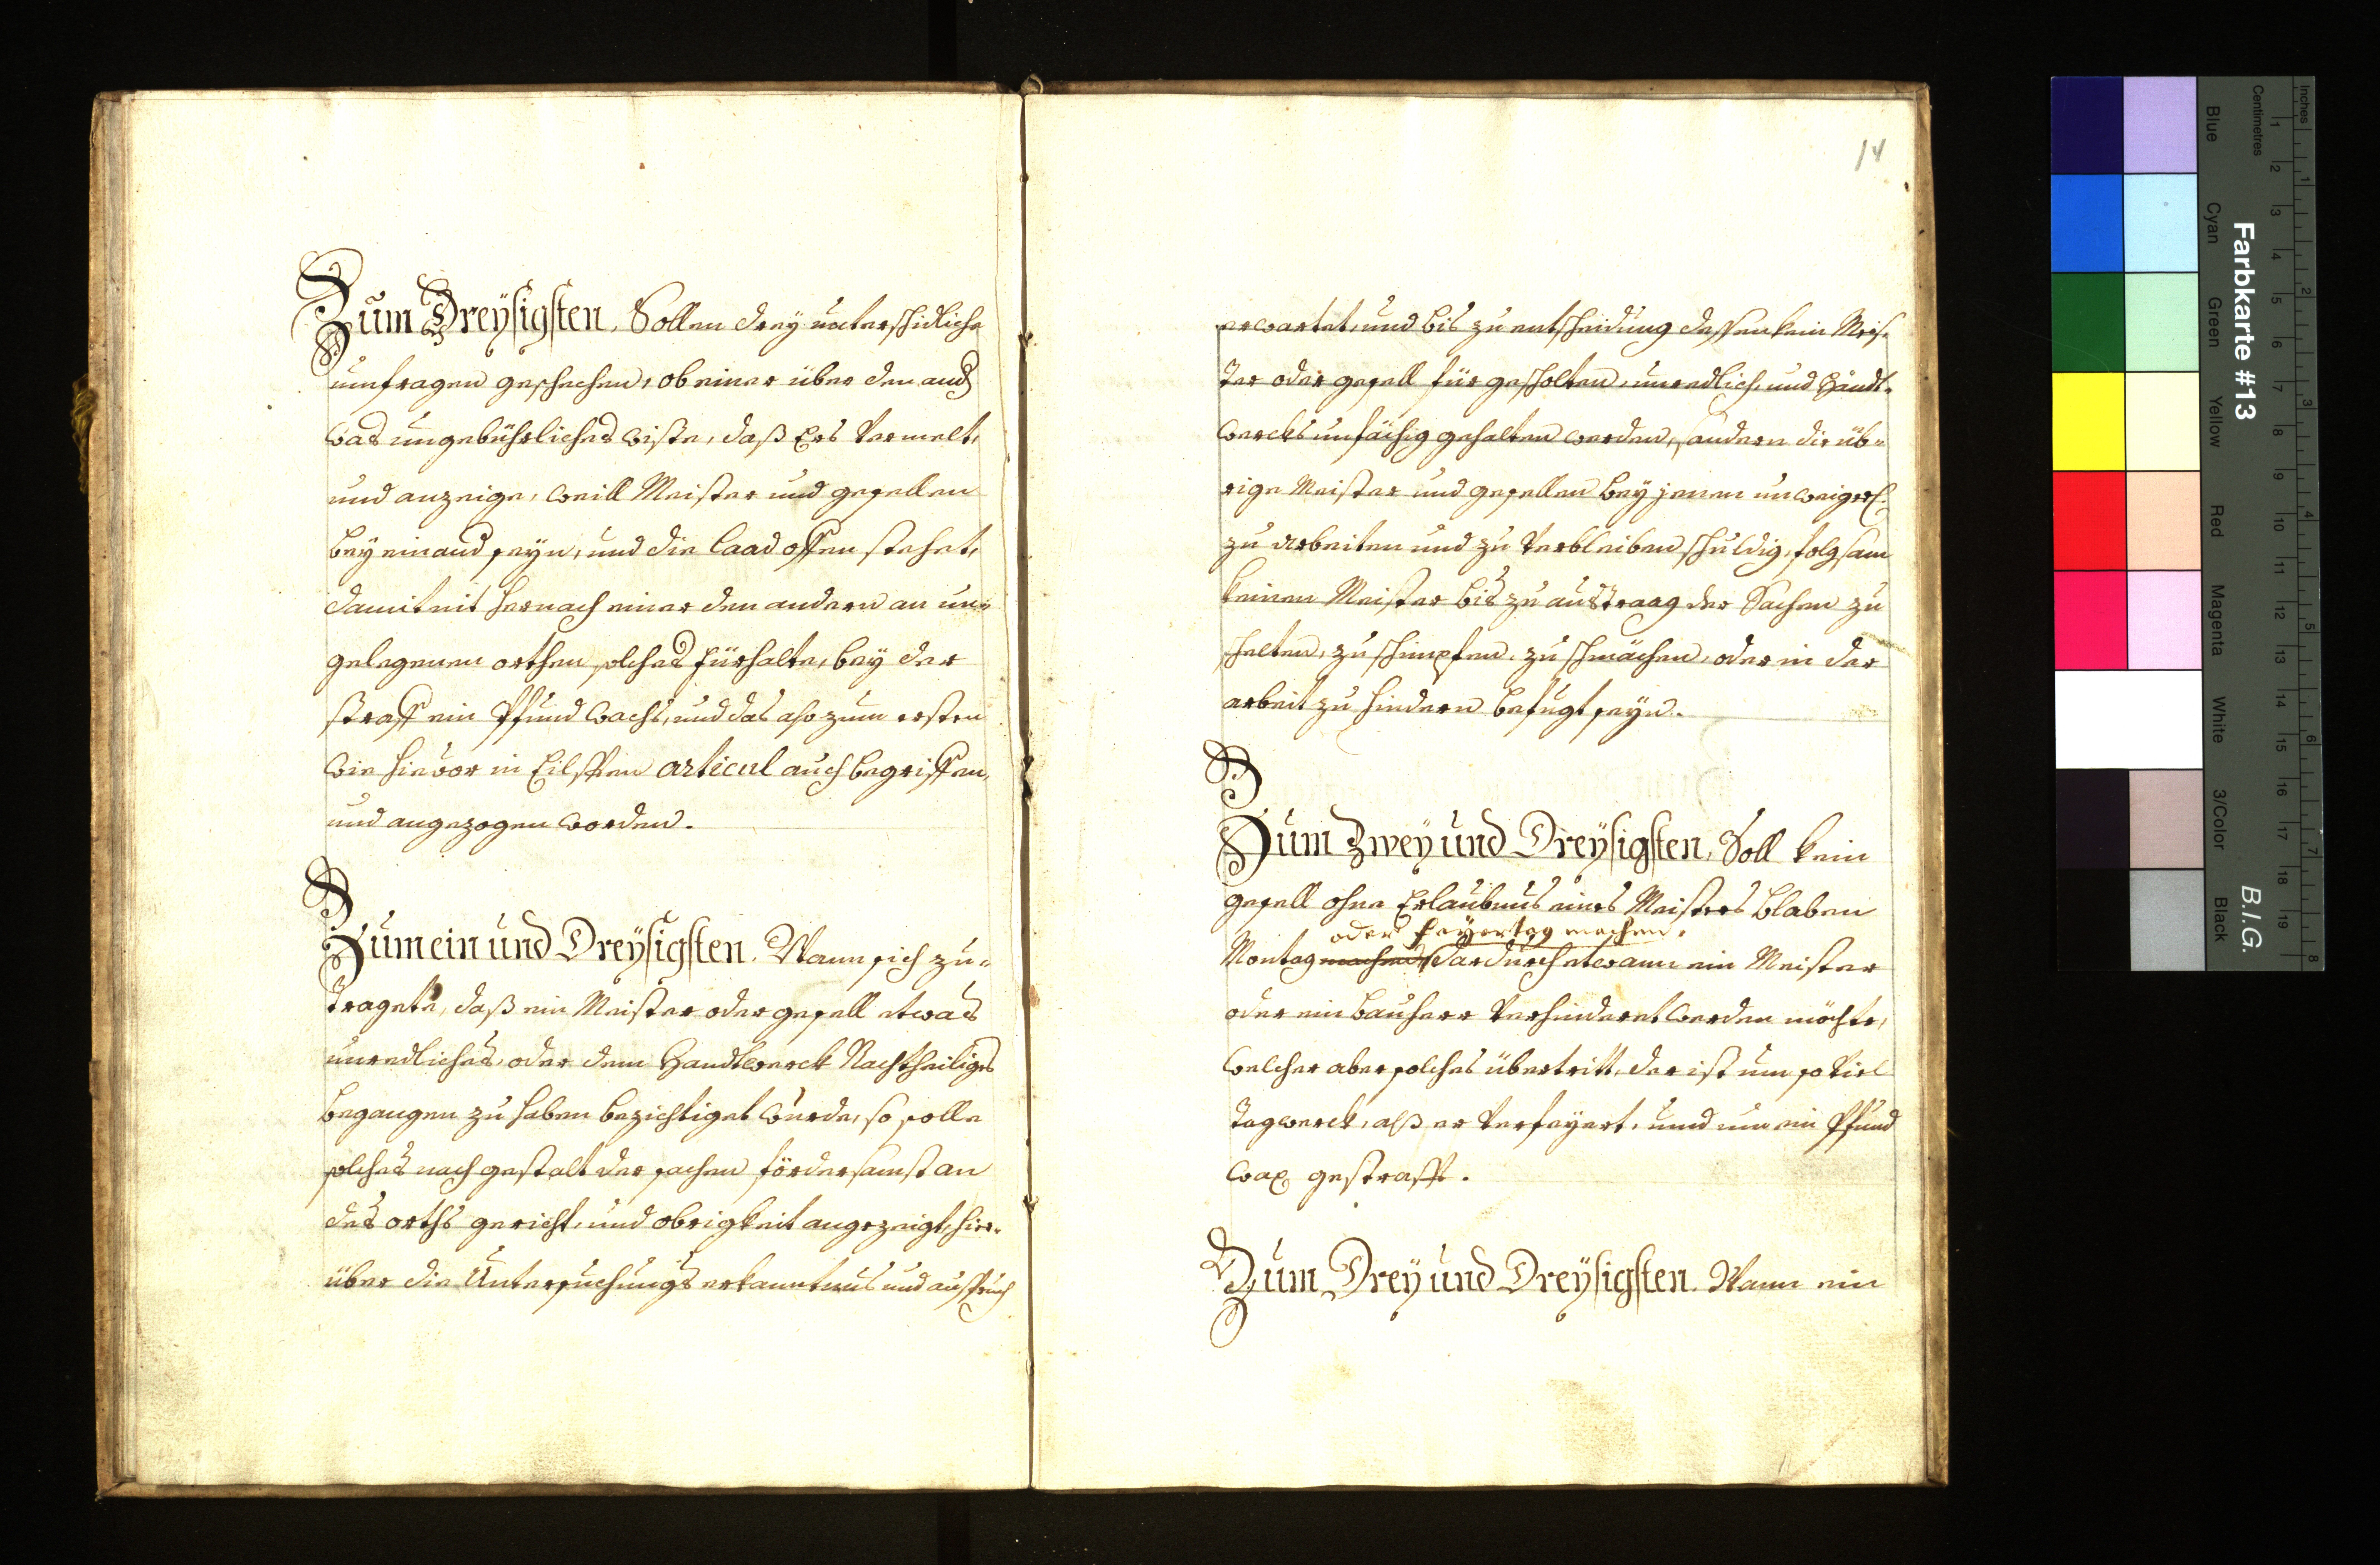 Zum Dreÿsigsten, Sollen dreÿ unterschidliche
umfragen geschechen, ob einer über den and
was ungebührliches wiste, daß Ers vermelt,
und anzeige, weill Meister und gesellen
beÿ einand seÿn, und die laad offen stehet,
damit nit hernach einer den andern an un=
gelegenen orthen solches fürhalte, beÿ der
straff ein Pfund wachs, und das also zum ersten
wie hievor in Eilfften articul auch begriffen,
und angezogen worden.
Zum ein und Dreÿsigsten. Wann sich zu=
tragete, daß ein Meister oder gesell etwas
unredliches, oder dem Handtwerck Nachtheiliges
begangen zu haben bezichtiget wurde, so solle
solches nach gestalt der sachen fördersamst an
des orths gericht, und obrigkeit angezeigt, hier=
über die Untersuchungs erkanntnus und ausspruch
14
erwartet, und bis zu entscheidung dessen kein Meis=
ter oder gesell für gescholten, unredlich, und Handt=
wercks unfächig gehalten werden, sondern die üb=
rige Meister und gesellen beÿ jenen unweigerl.
zu arbeiten und zu verbleiben schuldig, folgsam
keinen Meister bis zu austraag der Sachen zu
schelten, zu schimpfen, zu schmächen, oder in der
arbeit zu hindern befugt seÿn.
Zum Zweÿ und Dreÿsigsten, Soll kein
gesell ohne Erlaubnus eines Meisters blaben
oder feyertag machen,
Montag machen, dardurch etwann ein Meister
oder ein bauherr verhinderet werden möchte,
welcher aber solches übertritt, der ist um so viel
tagwerck, alß er verfeÿert, und um ein Pfund
wax gestrafft.
Zum Dreÿ und Dreÿsigsten. Wann ein
Inches
Centimetres
1 2 3 4 5 6 7 8
1 2 3 4 5 6 7 8 9 10 11 12 13 14 15 16 17 18 19
Farbkarte #13
B.I.G.
Blue
Cyan
Green
Yellow
Red
Magenta
White
3/Color
Black